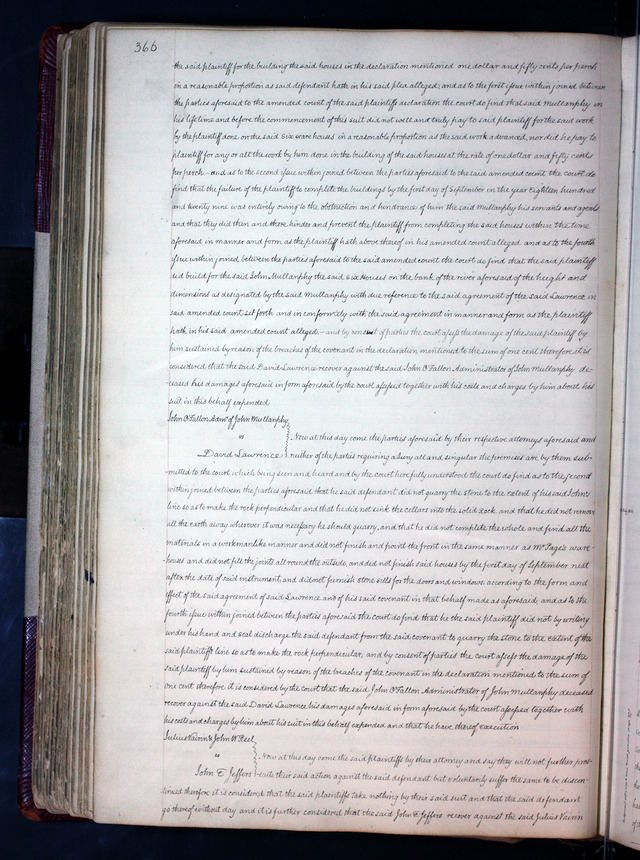 366
the said plaintiff for the building the said houses in the declaration mentioned one dollar and fifty cents per perch
in a reasonable proportion as said defendant hath in his said plea alleged; and as to the first issue within joined between
the parties aforesaid to the amended count of the said plaintiffs declaration the court do find that said Mullanphy in
his lifetime and before the commencement of this suit did not well and truly pay to said plaintiff for the said work
by the plaintiff done on the said Six ware houses in a reasonable proportion as the said work advanced, nor did he pay to
plaintiff for any or all the work by him done in the building of the said houses at the rate of one dollar and fifty cents
per perch – and as to the second issue within joined between the parties aforesaid to the said amended count the court do
find that the failure of the plaintiff to complete the buildings by the first day of September in the year Eighteen hundred
and twenty nine was entirely owing to the obstruction and hindrance of him the said Mullanphy his servants and agents
and that they did then and there hinder and prevent the plaintiff from completing the said houses within the time
aforesaid in manner and form as the plaintiff hath above thereof in his amended count alleged and as to the fourth
issue within joined between the parties aforesaid to the said amended count the court do find that the said plaintiff
did build for the said John Mullanphy the said Six Houses on the bank of the river aforesaid of the height and
dimensions as designated by the said Mullanphy with due reference to the said agreement of the said Lawrence in
said amended count set forth and in conformity with the said agreement in manner and form as the plaintiff
hath in his said amended count alleged – and by consent of parties the court assess the damage of the said plaintiff by
him sustained by reason of the breaches of the covenant in the declaration mentioned to the sum of one cent therefore it is
considered that the said David Lawrence recover against the said John O'Fallon Administrator of John Mullanphy de-
ceased his damages aforesaid in form aforesaid by the court assessed together with his costs and charges by him about his
suit in this behalf expended
John O'Fallon Admr of John Mullanphy
vs Now at this day come the parties aforesaid by their respective attorneys aforesaid and
David Lawrence neither of the parties requiring a Jury all and singular the premises are by them sub-
mitted to the court which being seen and heard and by the court here fully understood the court do find as to the second
within joined between the parties aforesaid that he said defendant did not quarry the stone to the extent of his said John's
line so as to make the rock perpendicular and that he did not sink the cellars into the solid rock and that he did not remove
all the earth away wherever it was necessary he should quarry, and that he did not complete the whole and find all the
materials in a workmanlike manner and did not finish and point the front in the same manner as Mr Page's ware-
houses and did not fill the joints all round the outside, and did not finish said houses by the first day of September next
after the date of said instrument and did not furnish stone sills for the doors and windows according to the form and
effect of the said agreement of said Lawrence and of his said covenant in that behalf made as aforesaid; and as to the
fourth issue within joined between the parties aforesaid the court do find that he the said plaintiff did not by writing
under his hand and seal discharge the said defendant from the said covenant to quarry the stone to the extent of the
said plaintiffs line so as to make the rock perpendicular, and by consent of parties the court assess the damage of the
said plaintiff by him sustained by reason of the breaches of the covenant in the declaration mentioned to the sum of
one cent therefore it is considered by the court that the said John O'Fallon Administrator of John Mullanphy deceased
recover against the said David Lawrence his damages aforesaid in form aforesaid by the court assessed together with
his costs and charges by him about his suit in this behalf expended and that he have thereof execution
Julius Vairin & John W Reel
vs Now at this day come the said plaintiffs by their attorney and say they will not further pros-
John E Jeffers ecute their said action against the said defendant but voluntarily suffer the same to be discon-
tinued therefore it is considered that the said plaintiffs take nothing by their said suit and that the said defendant
go thereof without day and it is further considered that the said John E Jeffers recover against the said Julius Vairin